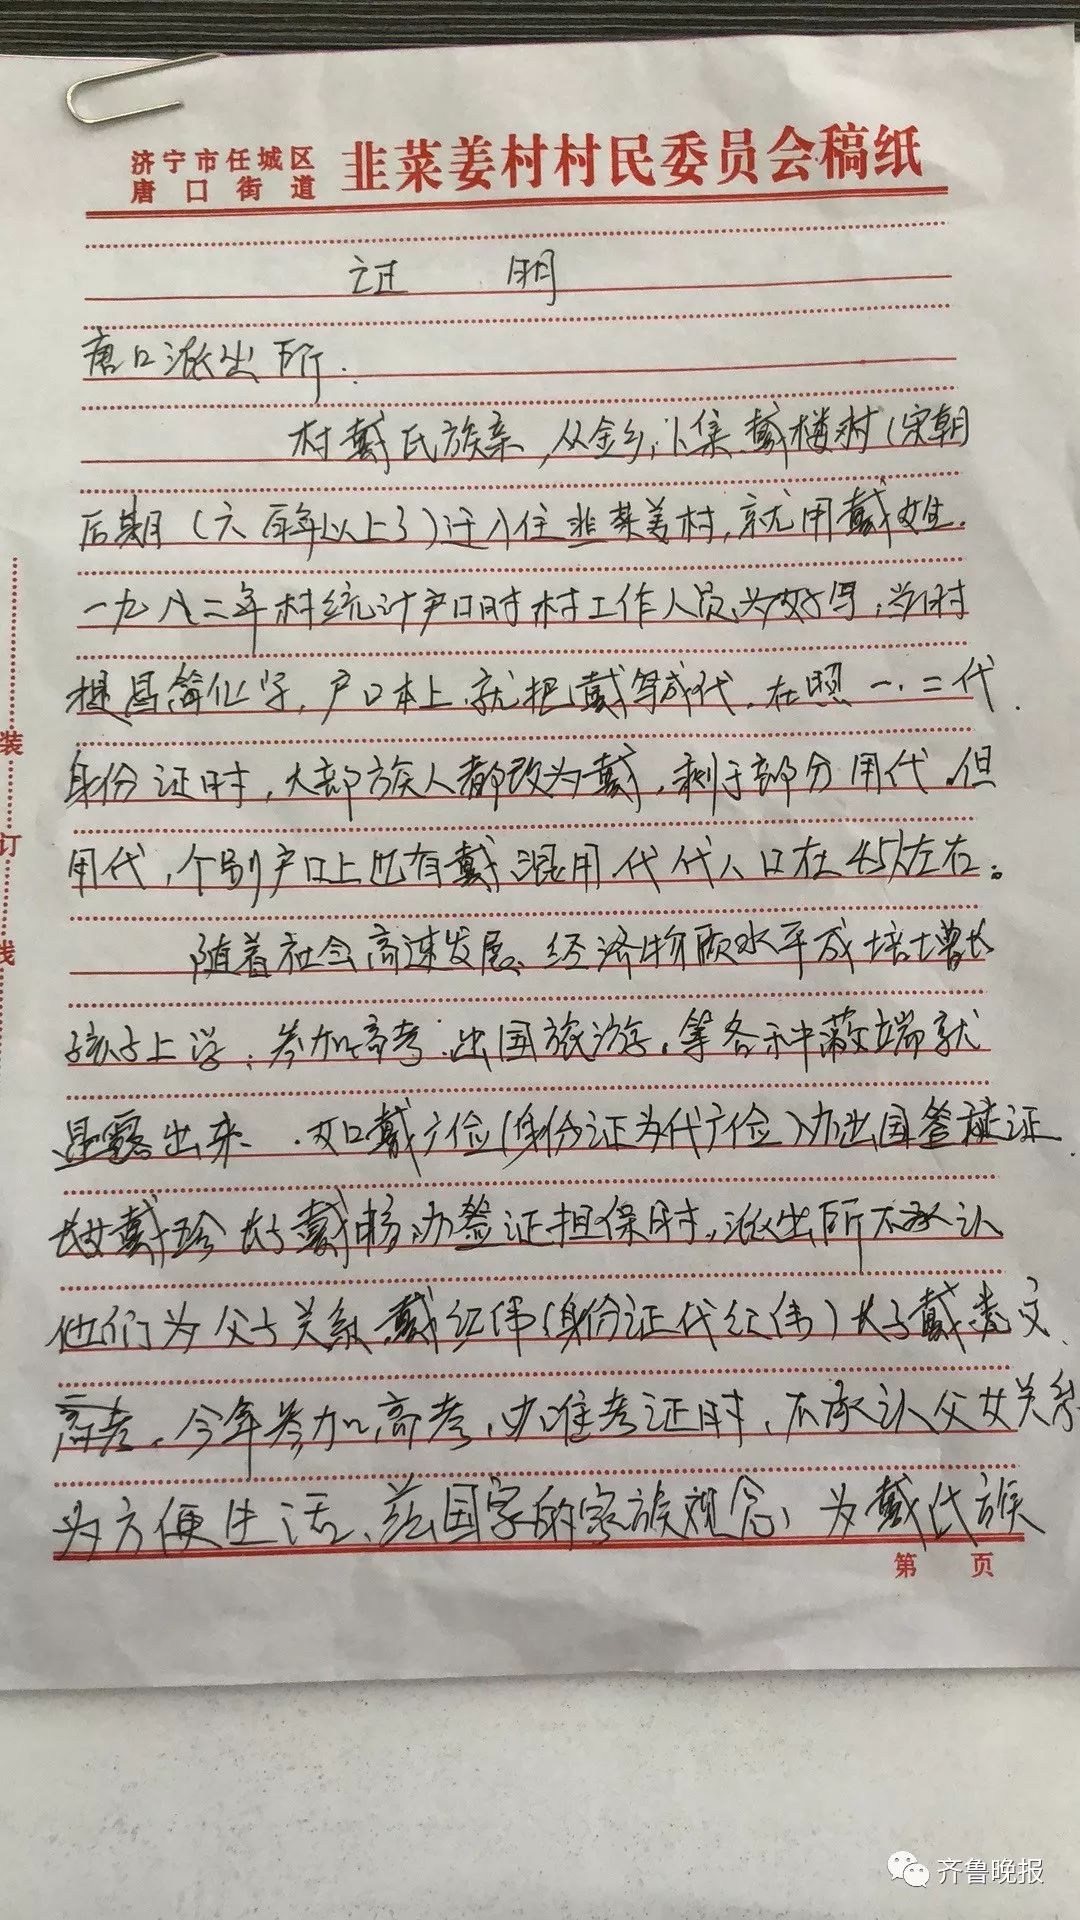 济宁市任城区
唐口街道
韭菜姜村村民委员会稿纸
证 明
唐口派出所:
村戴氏族亲,从金乡,卜集.戴楼村(宋朝
后期(六百年以上了)迁入住韭菜姜村,就用戴姓.
一九八二年村统计户口时村工作人员,为好写,当时
提昌简化字,户口本上.就把戴写成代.在照一.二代.
身份证时,大部族人都改为戴,剩于部分用代.但
用代,个别户口上也有戴.混用.代代人口在45人左右。
随着社会高速发展、经济物质水平成培增长
孩子上学.参加高考.出国旅游.等各种蔽端就
显露出来..如戴广俭(身份证为代广俭)办出国签证
长女戴珍长子戴 办签证担保时.派出所不承认
他们为父子关系.戴红伟(身份证代红伟)长子戴 文
高考.今年参加高考,办准考证时,不承认父女关系
为方便生活、 国家的家族观念、为戴氏族
第 页
装
订
线
齐鲁晚报